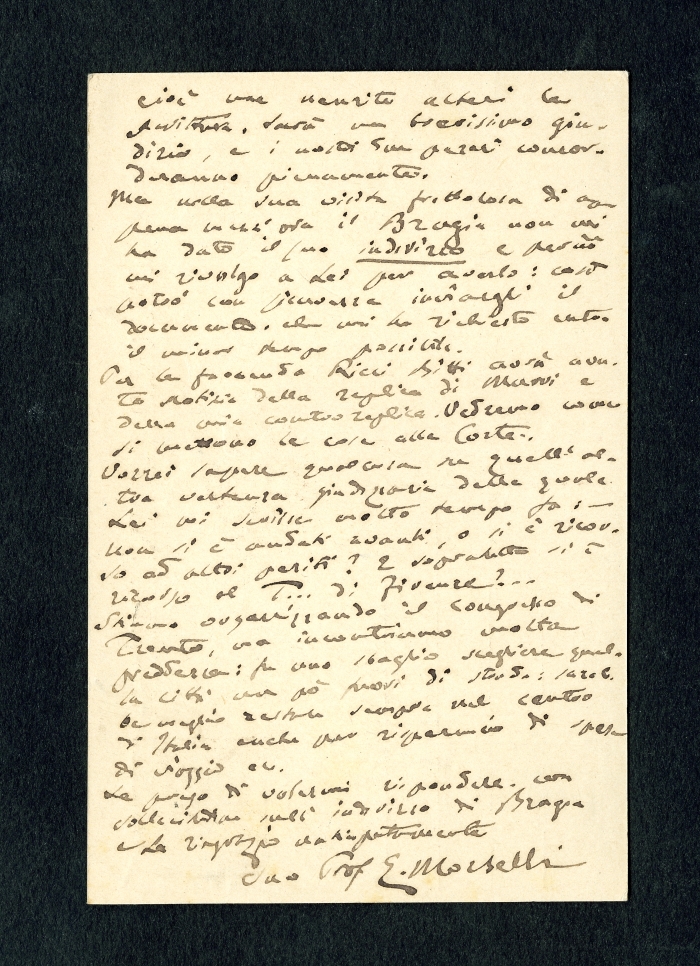 cioè una nenrite alteri la
scrittura. Sarà un brevissimo giu-
dizio, e i nostri due pareri concor-
deranno pienamente.
Ma nella sua visita frettolosa di ap-
pena mezz'ora il Bragia non mi
ha dato il suo indirizzo e perciò
mi rivolgo a Lei per averlo: così
potrò con sicurezza inviargli il
documento che mi ha richiesto entro
il minor tempo possibile.
Per la faccenda Ricci Bitti avrà avu-
ta notizia della replica di Marri e
della mia controreplica. Vedremo come
si mettono le cose alla Corte.
Vorrei sapere qualcosa su quell'al-
tra vertenza giudiziaria della quale
Lei mi scrisse molto tempo fa: —
non si è andati avanti, o si è ricor-
so ad altri periti? E sopratutto si è
ricorso al T... di Firenze?...
Stiamo organizzando il congresso di
Trento, ma incontriamo molta
freddezza: fu uno sbaglio scegliere quel-
la città un pò fuori di strada: sareb-
be meglio restare sempre nel centro
di Italia anche per risparmio di spesa
di viaggio ec.
La prego di volermi rispondere con
sollecitudine sull'indirizzo di Bragia
e La ringrazio anticipatamente
Suo Prof E. Morselli